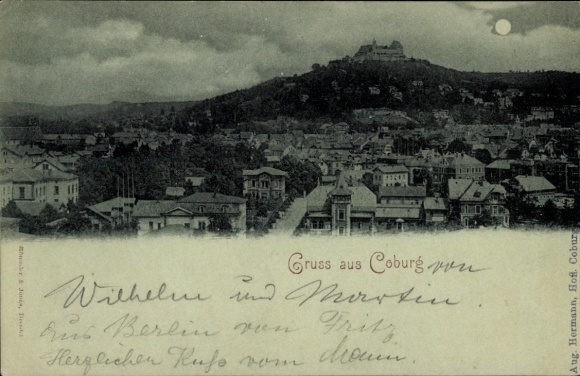 Gruss aus Coburg von
Wilhelm und Martin.
aus Berlin von Fritz
Herzlichen Kuß vom
Römmler & Jonas, Dresden
Aug. Hermann, Hofl. Coburg